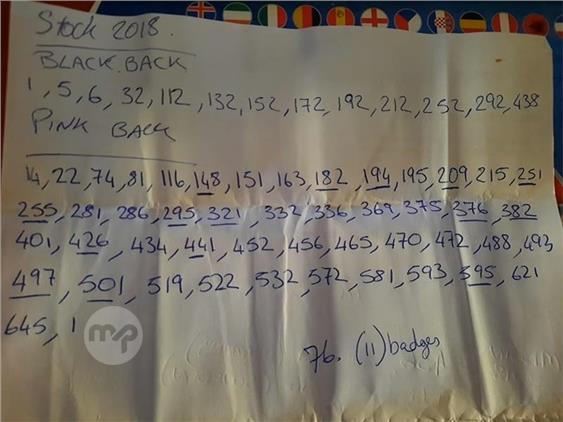 Stock 2018.
BLACK BACK
1, 5, 6, 32, 112, 132, 152, 172, 192, 212, 252, 292, 438
PINK BACK
14, 22, 74, 81, 116, 148, 151, 163, 182, 194, 195, 209, 215, 251
255, 281, 286, 295, 321, 332, 336, 369, 375, 376, 382
401, 426, 434, 441, 452, 456, 465, 470, 472, 488, 493
497, 501, 519, 522, 532, 572, 581, 593, 595, 621
645, 1
76. (11) badges
mp